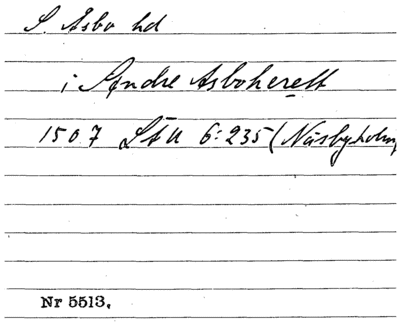 S. Åsbo hd
i Söndre Asboherett
1507 LÄU 6:235 (Näsbyholm
Nr 5513.